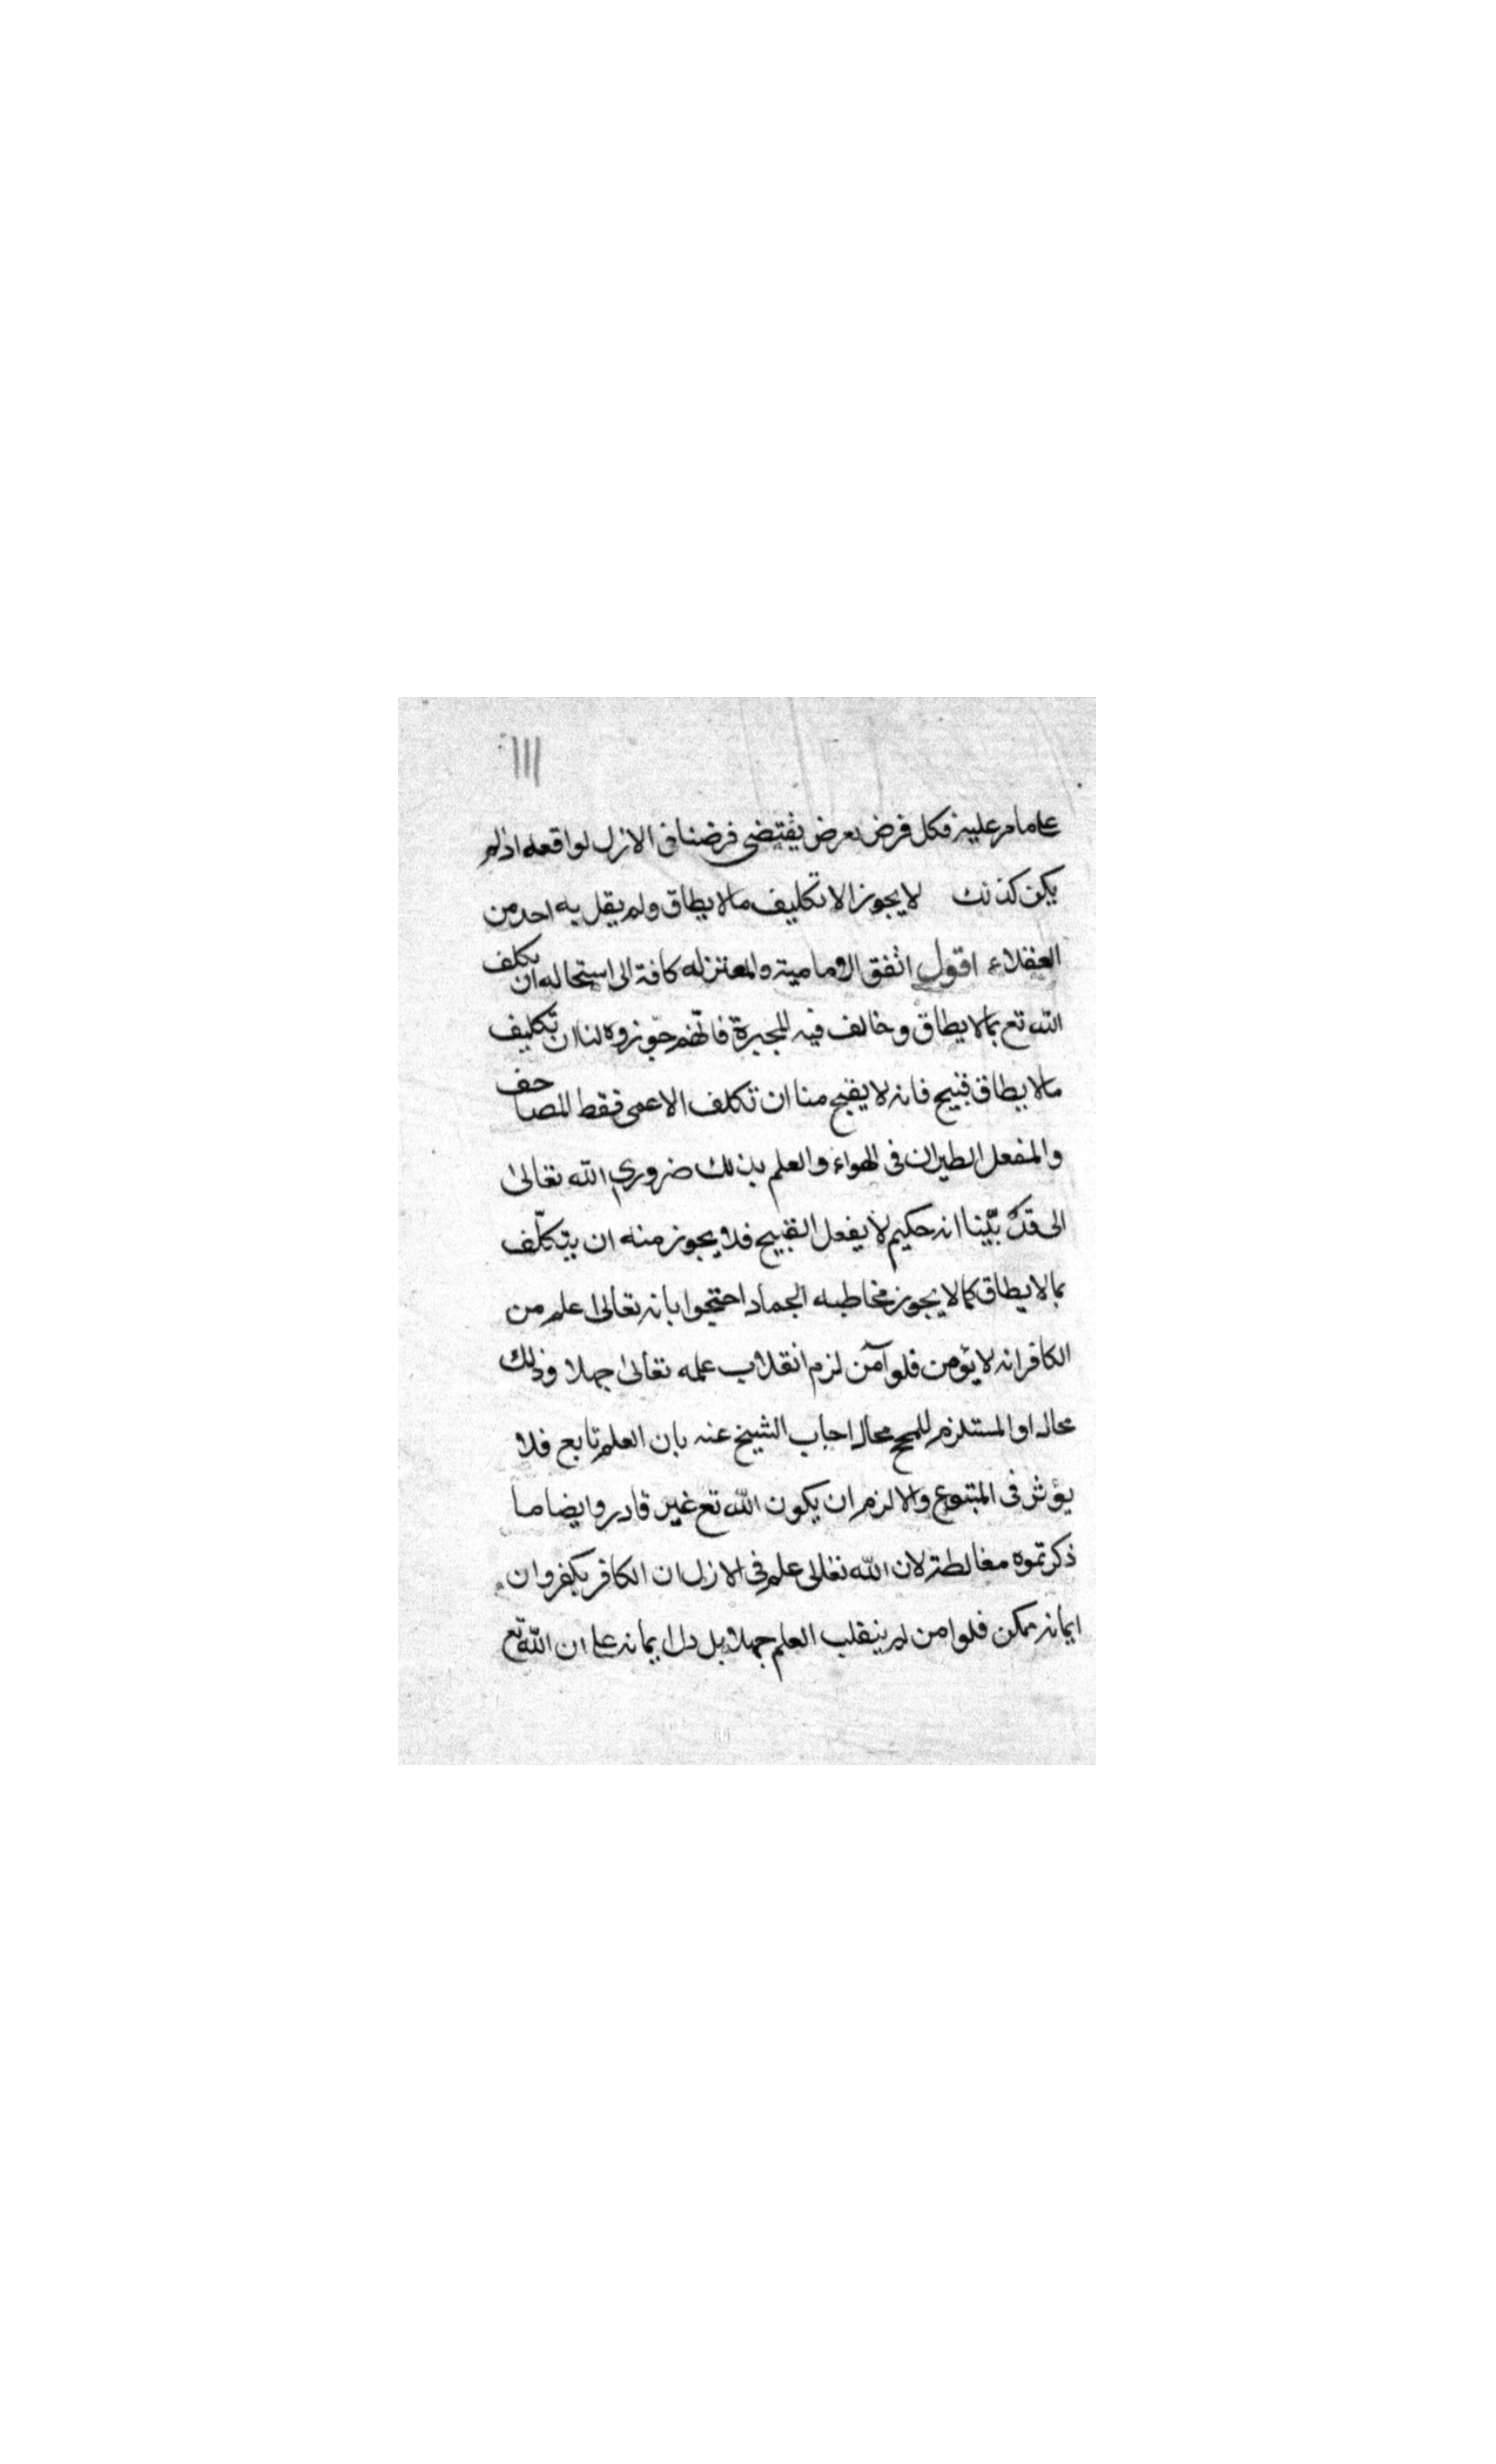 ١١١
على ما مر عليه فكل فرض يعرض يقتضى فرضنا فى الازل لواقعه اذ لم
يكن كذلك لا يجوز الا تكليف ما لا يطاق ولم يقل به احد من
العقلاء اقول اتفق الامامية والمعتزله كافة الى استحاله ان يكلف
الله تع بما لا يطاق وخالف فيه المجبرة فانهم جوزوه لنا ان تكليف
ما لا يطاق قبيح فانه لا يقبح منا ان تكلف الاعمى فقط المصاحف
والمفعل الطيران فى الهواء والعلم بذلك ضرورى الله تعالى
الى قد بيّنا انه حكيم لا يفعل القبيح فلا يجوز منه ان يتكلّف
بما لا يطاق كما لا يجوز مخاطبه الجماد احتجوا بانه تعالى علم من
الكافر انه لا يؤمن فلو آمن لزم انقلاب علمه تعالى جهلا وذلك
محال او المستلزم للمح محال اجاب الشيخ عنه بان العلم تابع فلا
يؤثر فى المتبوع والا لزم ان يكون الله تع غير قادر وايضا ما
ذكرتموه مغالطة لان الله تعالى علم فى الازل ان الكافر يكفر وان
ايمانه ممكن فلو امن لم ينقلب العلم جهلا بل دل ايمانه على ان الله تع